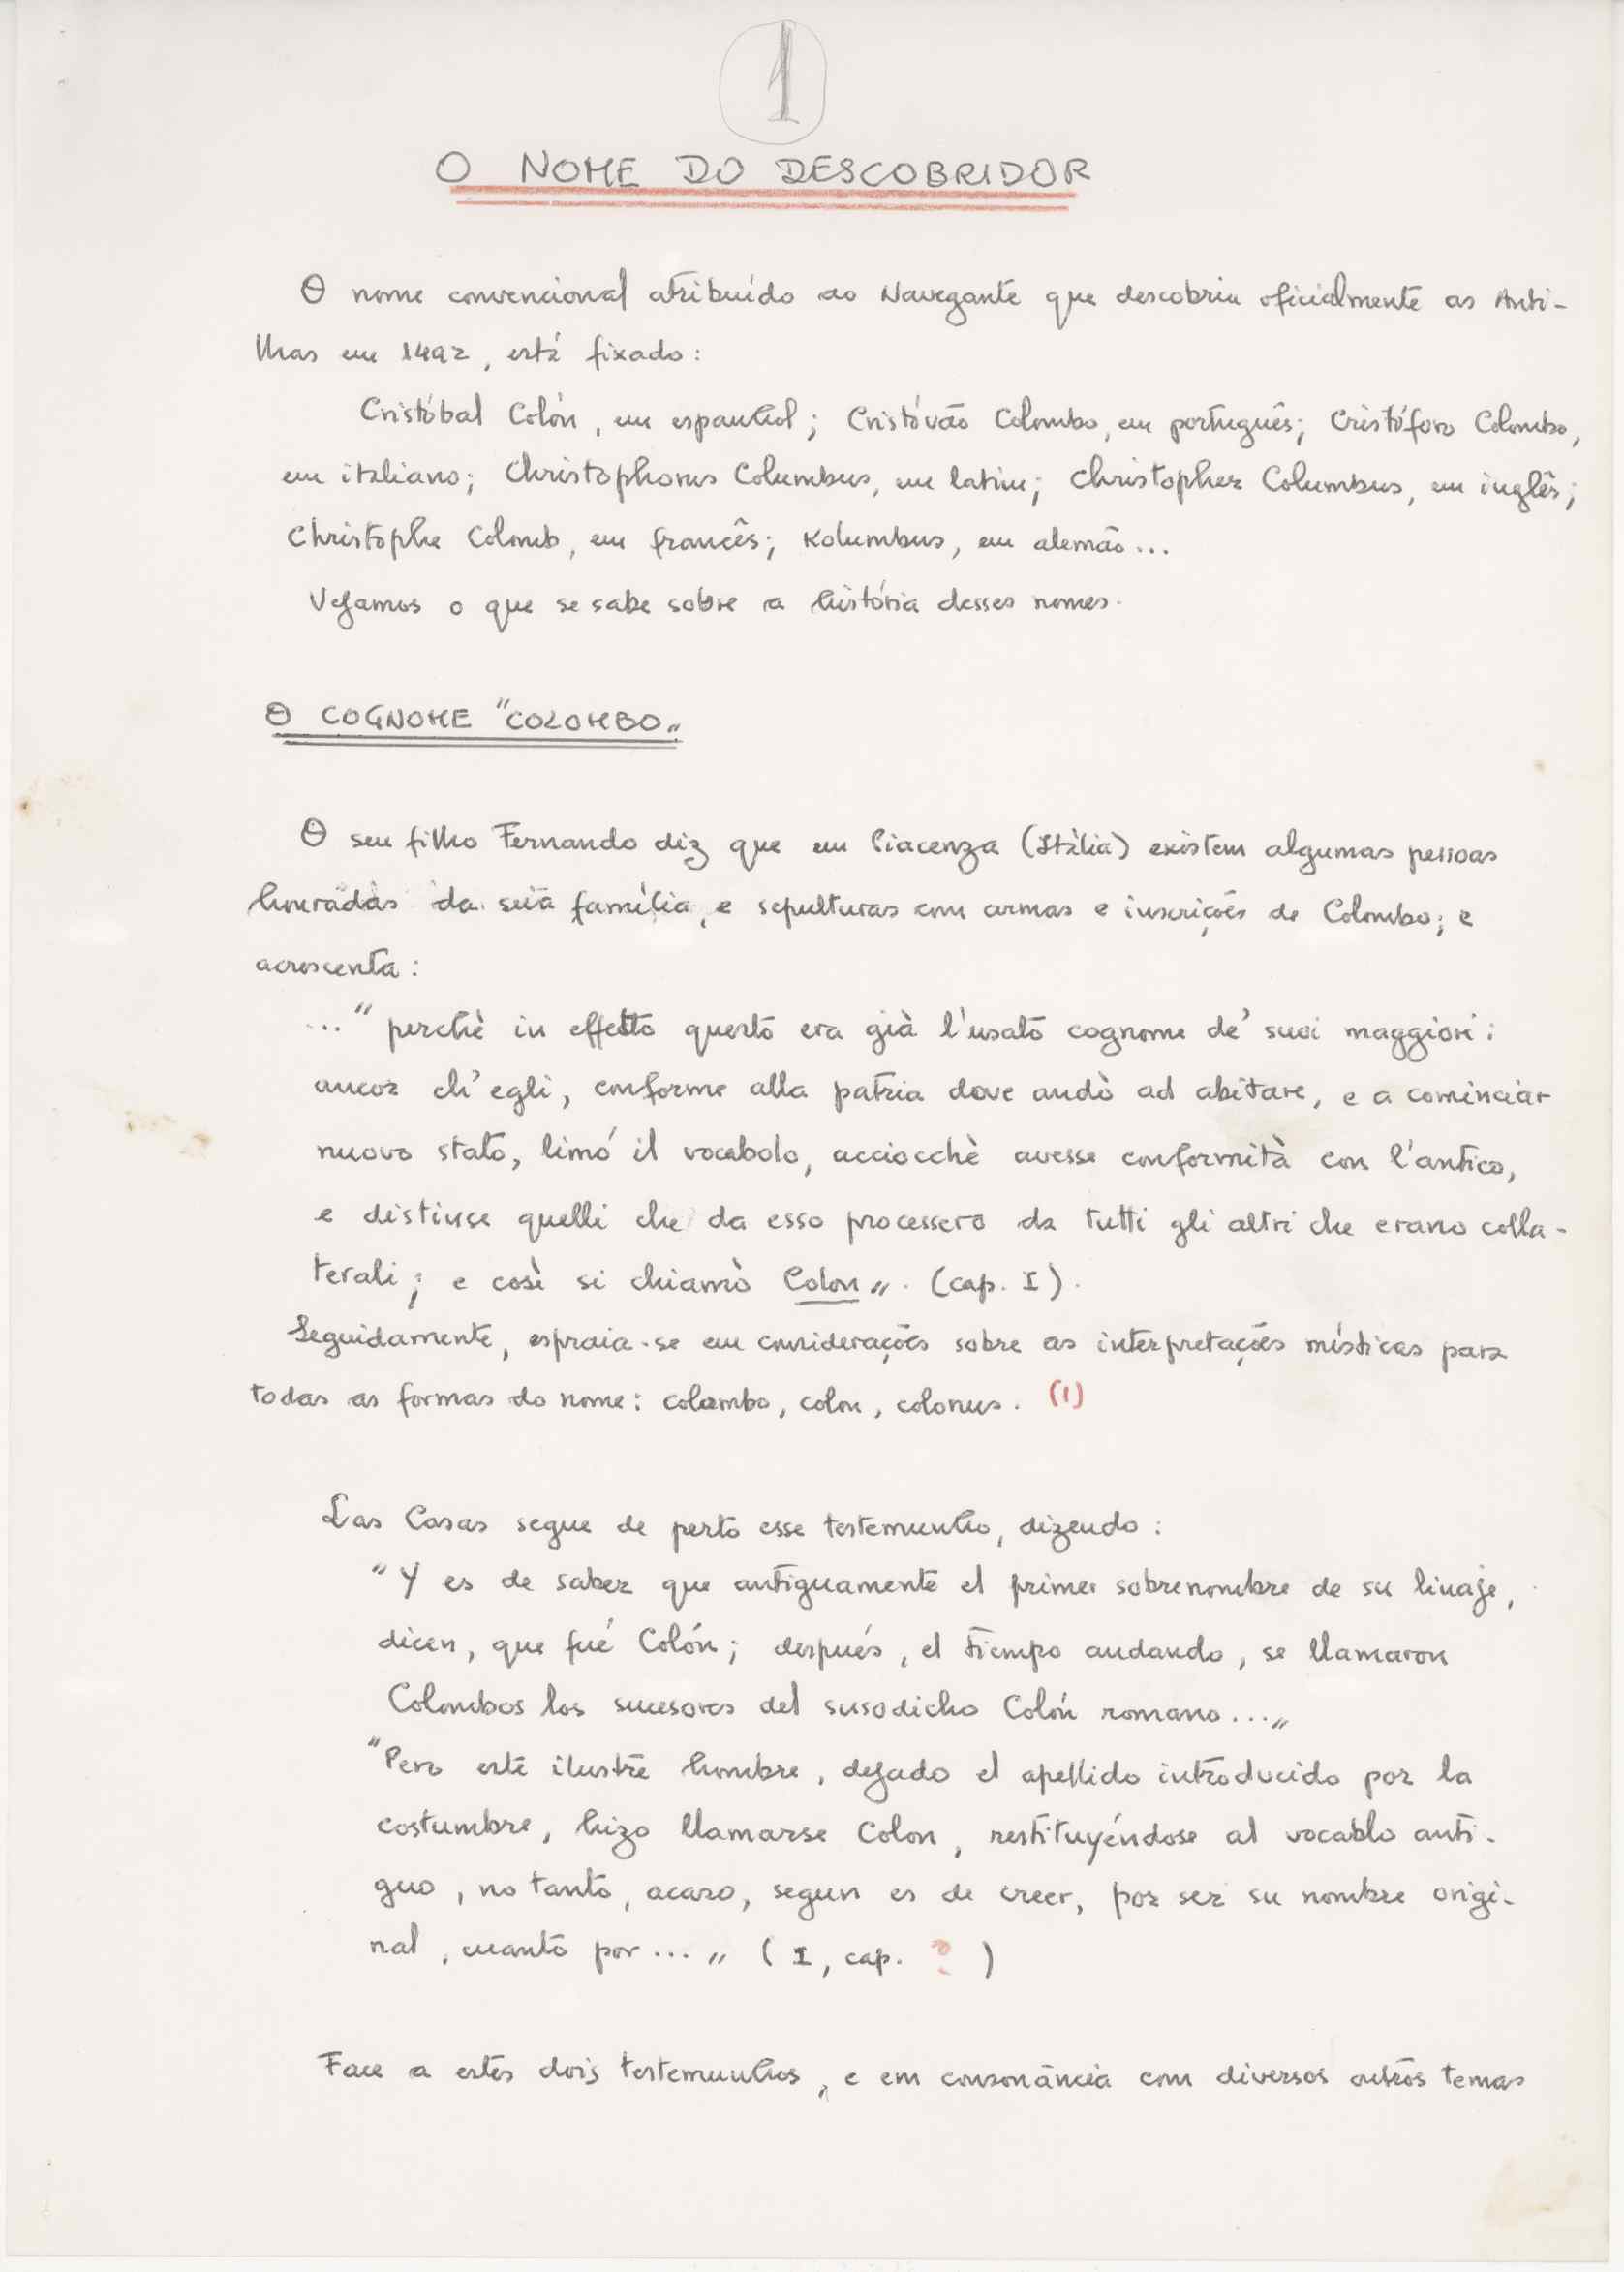 1
O NOME DO DESCOBRIDOR
O nome convencional atribuído ao Navegante que descobriu oficialmente as Anti-
lhas em 1492, está fixado:
Cristóbal Colón, em espanhol; Cristóvão Colombo, em português; Cristóforo Colombo,
em italiano; Christophorus Columbus, em latim; Christopher Columbus, em inglês;
Christophe Colomb, em francês; Kolumbus, em alemão...
Vejamos o que se sabe sobre a história desses nomes.
O COGNOME "COLOMBO"
O seu filho Fernando diz que em Piacenza (Itália) existem algumas pessoas
honradas da sua família, e sepulturas com armas e inscrições de Colombo; e
acrescenta:
..." perchè in effetto questo era già l'usato cognome de' suoi maggiori:
ancor ch'egli, conforme alla patria dove andò ad abitare, e a cominciar
nuovo stato, limó il vocabolo, acciocchè avesse conformità con l'antico,
e distinse quelli che da esso processero da tutti gli altri che erano colla-
terali; e cosè si chiamò Colon". (cap. I).
Seguidamente, espraia-se em considerações sobre as interpretações místicas para
todas as formas do nome: colombo, colon, colonus. (1)
Las Casas segue de perto esse testemunho, dizendo:
"Y es de saber que antiguamente el primer sobrenombre de su linaje,
dicen, que fué Colón; después, el tiempo andando, se llamaron
Colombos los sucesores del susodicho Colón romano..."
"Pero este ilustre hombre, dejado el apellido introducido por la
costumbre, hizo llamarse Colon, restituyéndose al vocablo anti-
guo, no tanto, acaso, segun es de creer, por ser su nombre origi-
nal, cuanto por..." (I, cap. ? )
Face a estes dois testemunhos, e em consonância com diversos outros temas